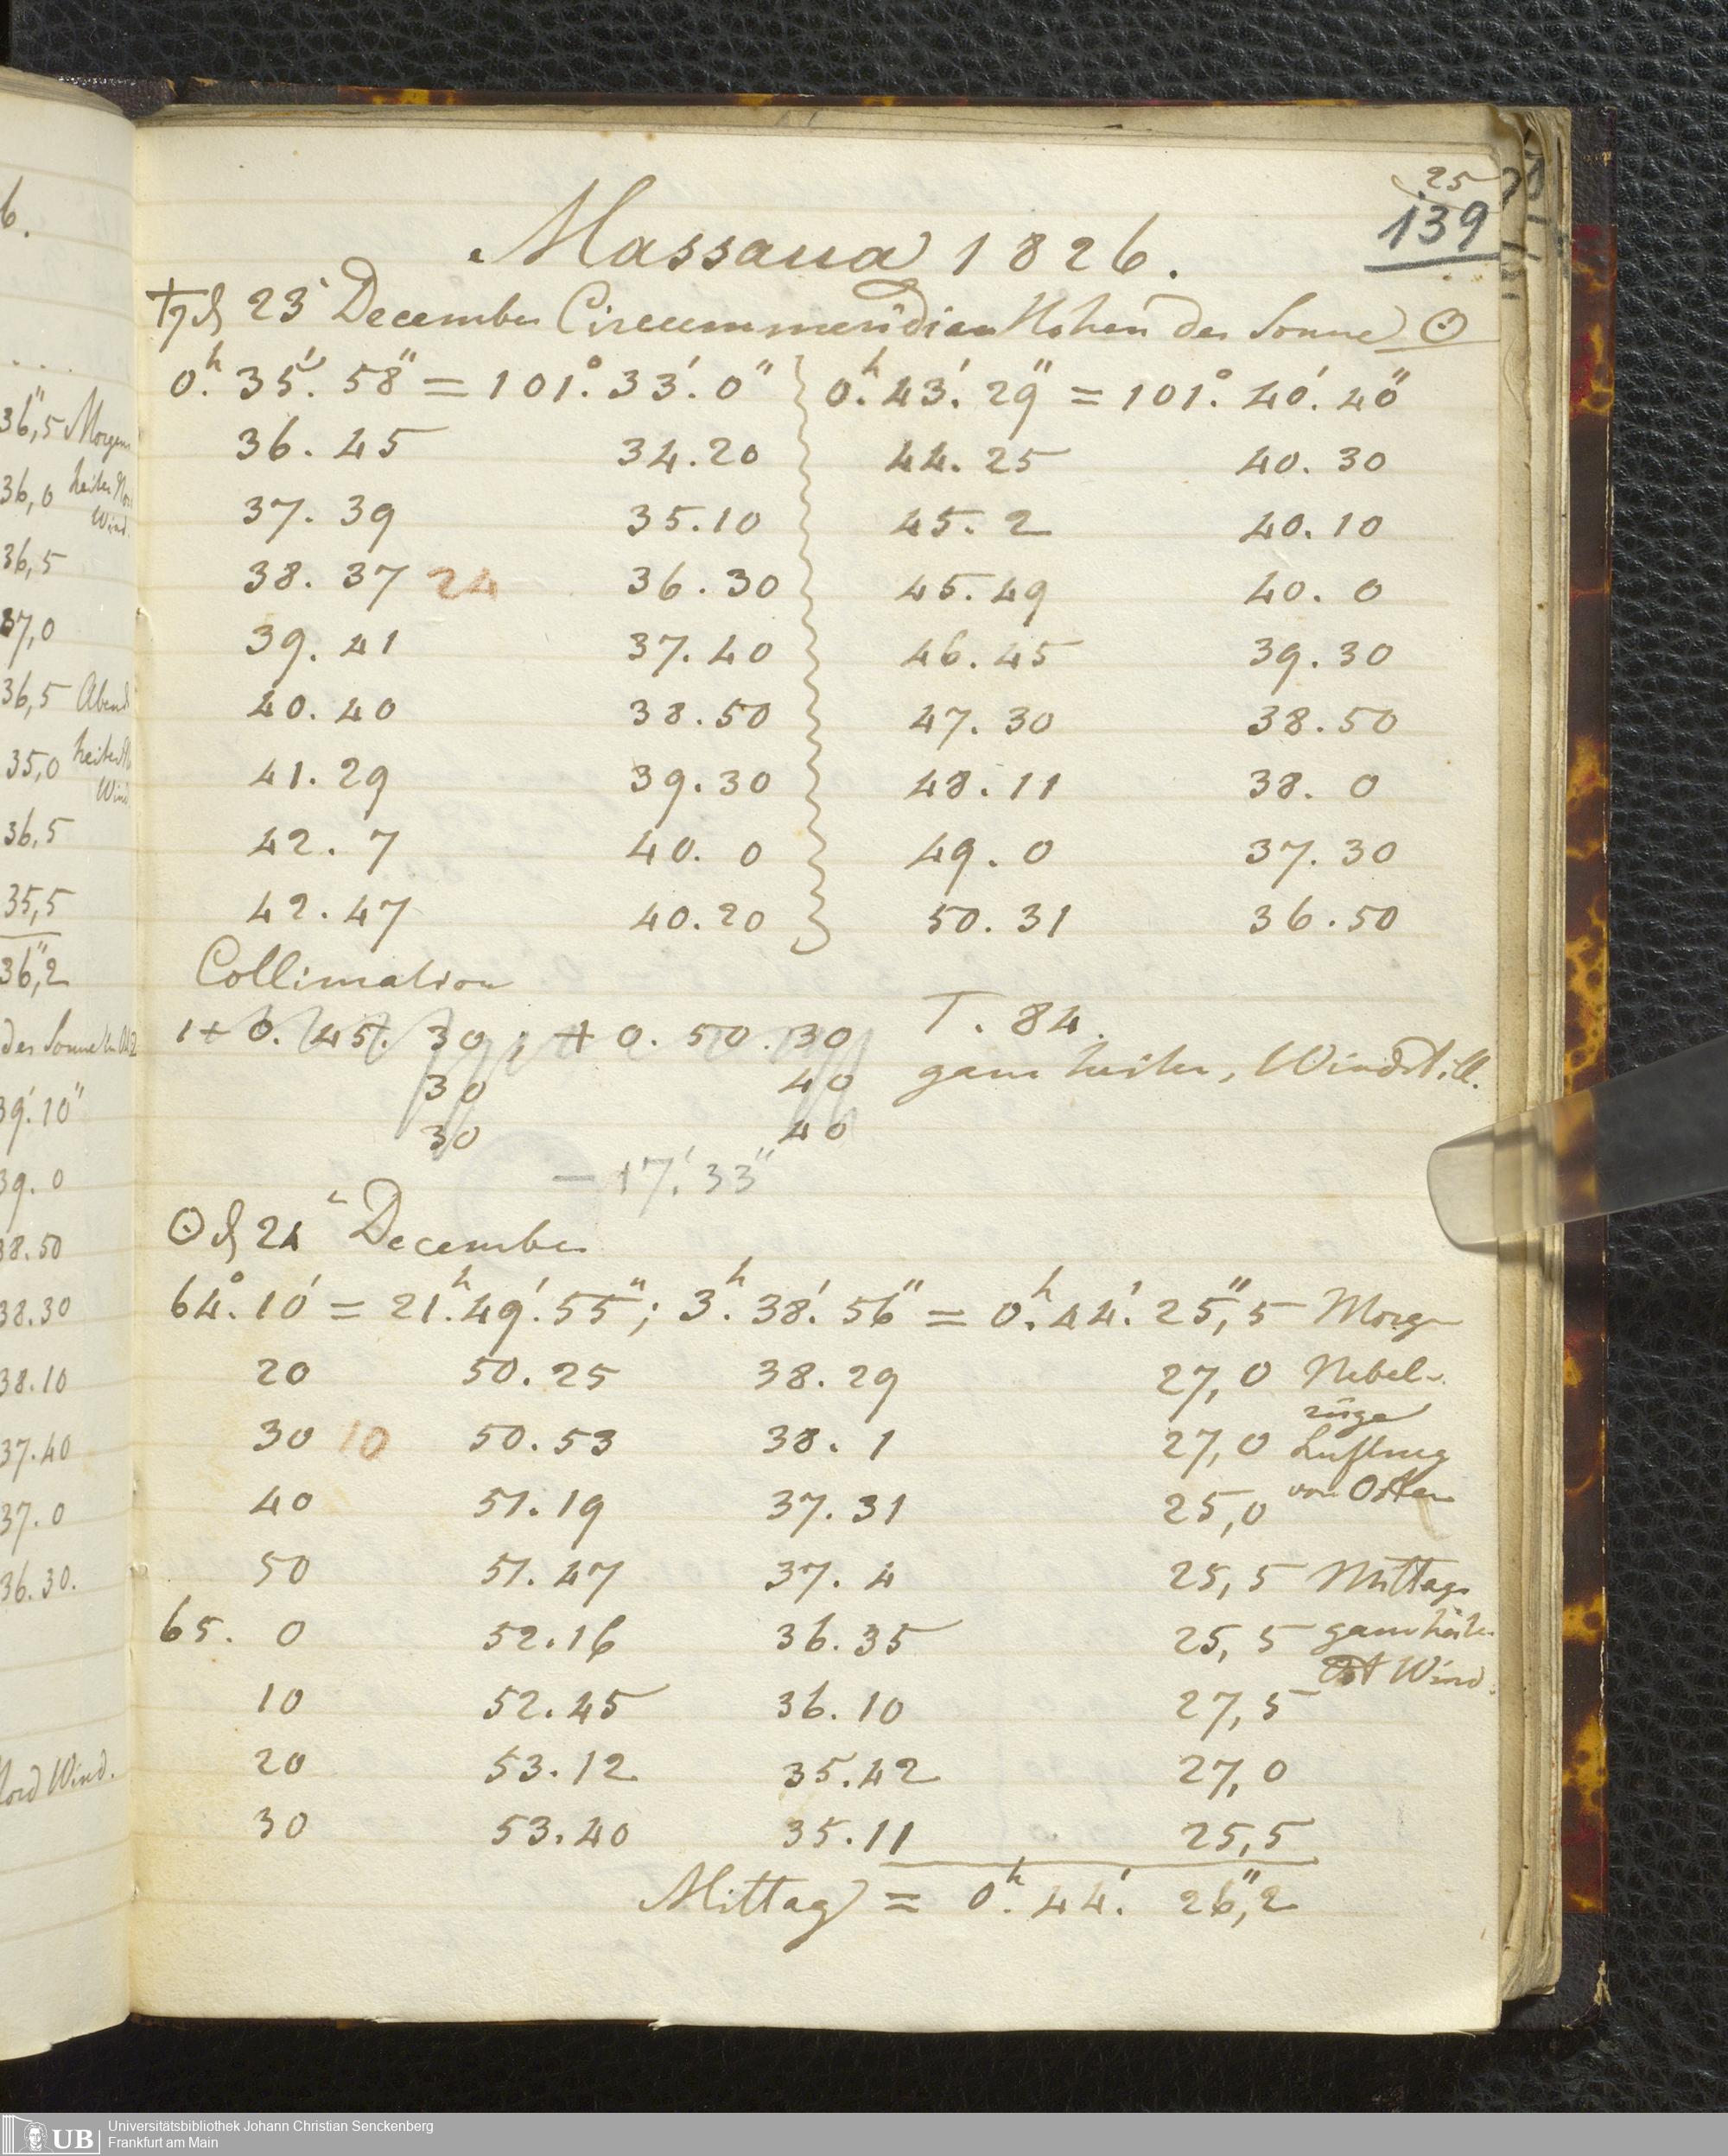 6.
36",5 Morgen
36,0 heiter
Wind
36,5
37,0
36,5 Abend
35,0 heiter
Wind
36,5
35,5
36",2
der Sonne
39'.10"
39.0
38.50
38.30
38.10
37.40
37.0
36.30.
Nord Wind.
25
139
Massaua 1826.
♄ d 23t December Circummeridian Höhen der Sonne ☉
0h. 35'. 58" = 101°. 33'. 0" } 0h. 43'. 29" = 101°. 40'. 40"
36. 45 34.20 44. 25 40. 30
37. 39 35.10 45. 2 40. 10
38. 37 24 36.30 45. 49 40. 0
39. 41 37.40 46. 45 39. 30
40. 40 38.50 47. 30 38. 50
41. 29 39.30 48. 11 38. 0
42. 7 40. 0 49. 0 37. 30
42. 47 40.20 50. 31 36. 50
Collimation
1+ 0. 45. 30, + 0. 50. 30 T. 84.
30 40 ganz heiter, Windstill.
30 40
− 17'. 33"
☉ d 24t December
64°. 10' = 21h. 49'. 55"; 3h. 38'. 56" = 0h. 44'. 25",5 Morgen
20 50. 25 38. 29 27,0 Nebel-
züge
30 10 50. 53 38. 1 27,0 Luftzug
von Osten
40 51. 19 37. 31 25,0
50 51. 47 37. 4 25,5 Mittags
65. 0 52. 16 36. 35 25,5 ganz heiter
Ost Wind.
10 52. 45 36. 10 27,5
20 53. 12 35. 42 27,0
30 53. 40 35. 11 25,5
Mittag = 0h. 44'. 26",2
UB
Universitätsbibliothek Johann Christian Senckenberg
Frankfurt am Main